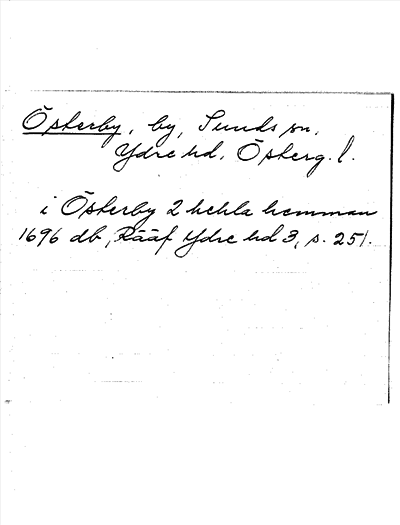 Österby, by, Sunds sn,
Ydre hd. Österg. l.
i Österby 2 hehla hemman
1696 db, Rääf Ydre hd 3, s. 251.